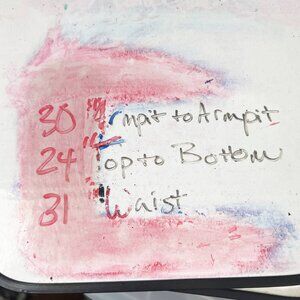 30" Armpit to Armpit
24" Top to Bottom
31" Waist